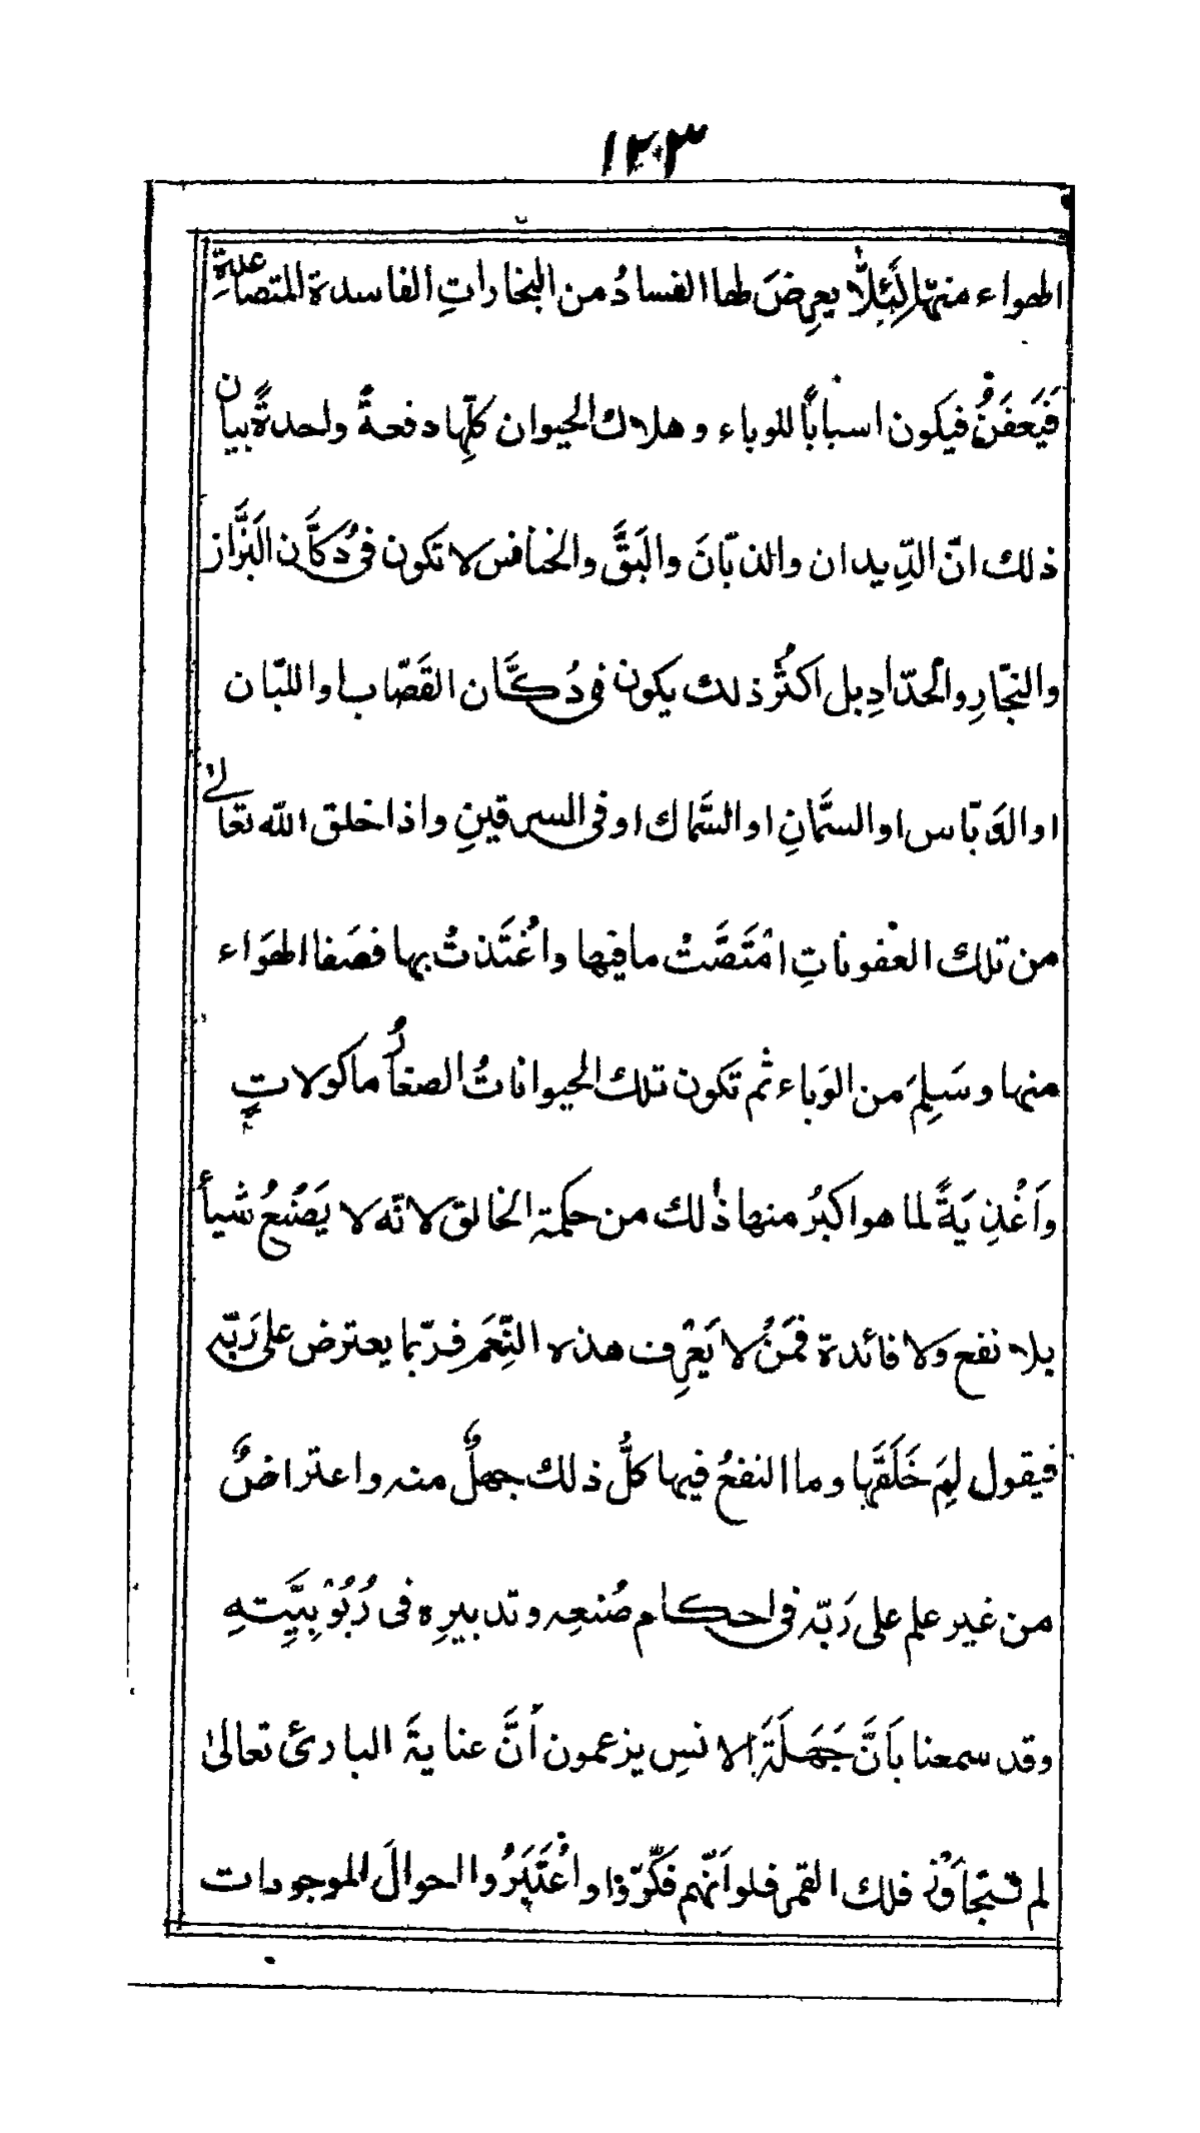 ١٢٠٣
الهواء منها لِئَلّا يعرِضَ لها الفسادُ من البخاراتِ الفاسدة المتصاعدةِ
فَيَعفَنُ فيكون اسباباً للوباء وهلاك الحيوان كلِّها دفعةً واحدةً بيان
ذلك انّ الدِّيدان والذبّانَ والبَقَّ والخنافس لا تكون فی دُكَّان البَزَّاز
والنجّارِ والحدّادِ بل اكثرُ ذلك يكون فی دُكَّان القَصّاب او اللبّان
او الدَبّاس او السمَّانِ او السَّماك او فی السرقينِ واذا خلق الله تعالیٰ
من تلك العفوناتِ امْتَصَّتْ ما فيها واغْتَذتْ بها فصَفا الهَوَاء
منها وسَلِمَ من الوَباء ثم تَكون تلك الحيواناتُ الصغارُ ماكولاتٍ
وَاَغْذِيَةً لما هو اكبرُ منها ذٰلك من حكمة الخالق لانّه لا يَصْنَعُ شيأً
بلا نفع ولا فائدة فمَنْ لا يَعْرِف هذه النِّعَم فربّما يعترض علی رَبّه
فيقول لِمَ خَلَقَها وما النفعُ فيها كلُّ ذلك جهلٌ منه واعتراضٌ
من غير علم علی رَبّه فی احكام صُنعِه وتدبيرِه فی رُبُوْبِيَّتِهِ
وقد سمعنا بِاَنَّ جَهَلَةَ الانسِ يزعمون اَنَّ عنايةَ البارئ تعالیٰ
لم تتجاوَزْ فلك القمر فلو اَنّهم فَكَّرُوا واعْتَبَرُوا احوالَ الموجودات